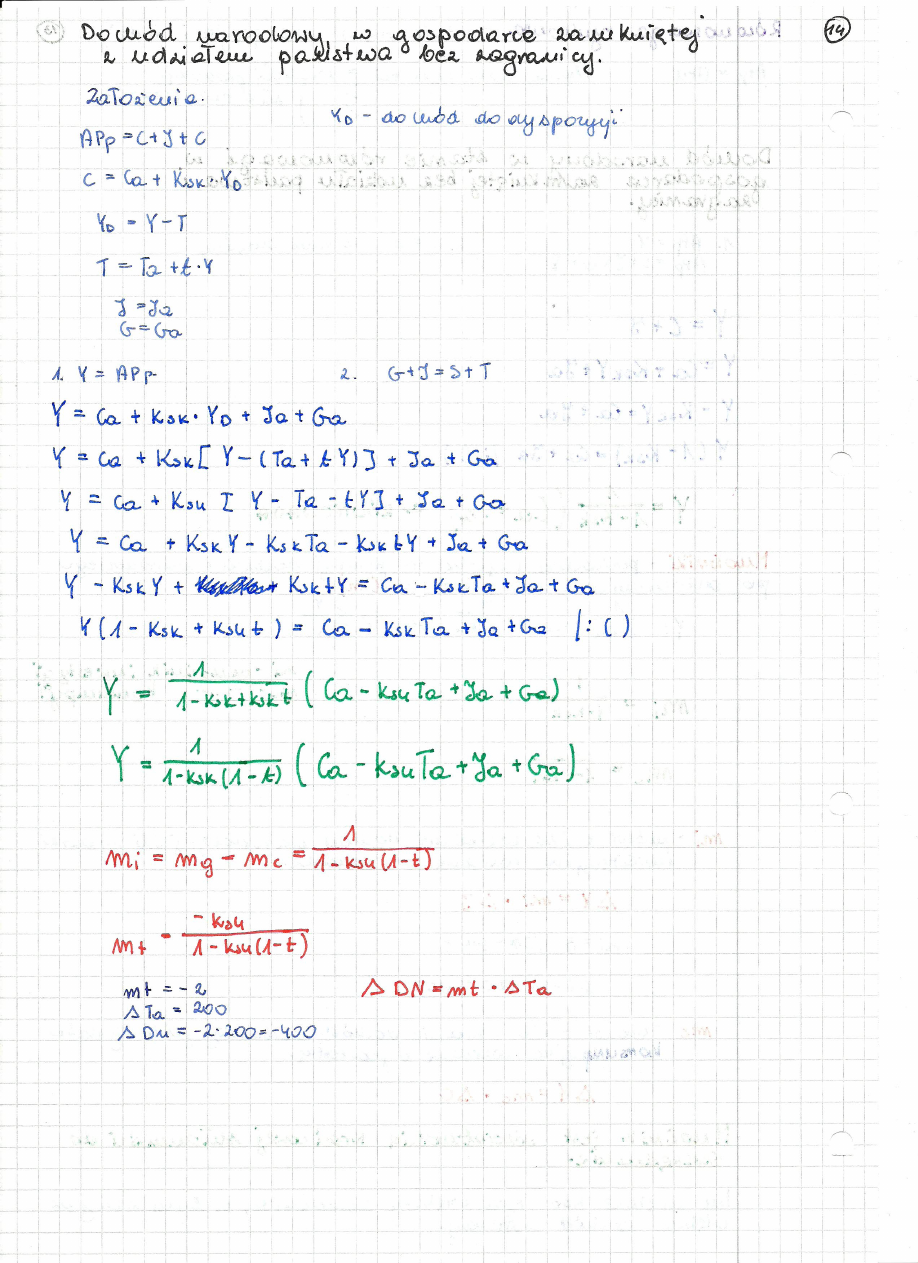 Dochód narodowy w gospodarce zamkniętej 14
z udziałem państwa bez zagranicy.
Założenia.
YD - dochód do dyspozycji
APp = C + J + C
C = Ca + Ksk · YD
YD = Y - T
T = Ta + t · Y
J = Ja
G = Ga
1. Y = APp 2. G + J = S + T
Y = Ca + Ksk · YD + Ja + Ga
Y = Ca + Ksk [ Y - (Ta + tY)] + Ja + Ga
Y = Ca + Ksk [ Y - Ta - tY] + Ja + Ga
Y = Ca + Ksk Y - Ksk Ta - Ksk tY + Ja + Ga
Y - Ksk Y + Ksk tY = Ca - Ksk Ta + Ja + Ga
Y (1 - Ksk + Ksk t ) = Ca - Ksk Ta + Ja + Ga /: ( )
Y = 1 / (1 - ksk + ksk t) ( Ca - ksk Ta + Ja + Ga)
Y = 1 / (1 - ksk (1 - t)) ( Ca - ksk Ta + Ja + Ga)
mi = mg - mc = 1 / (1 - ksk (1 - t))
mt - -ksk / (1 - ksk (1 - t))
mt = - 2 Δ DN = mt · Δ Ta
Δ Ta = 200
Δ Dn = -2 · 200 = -400